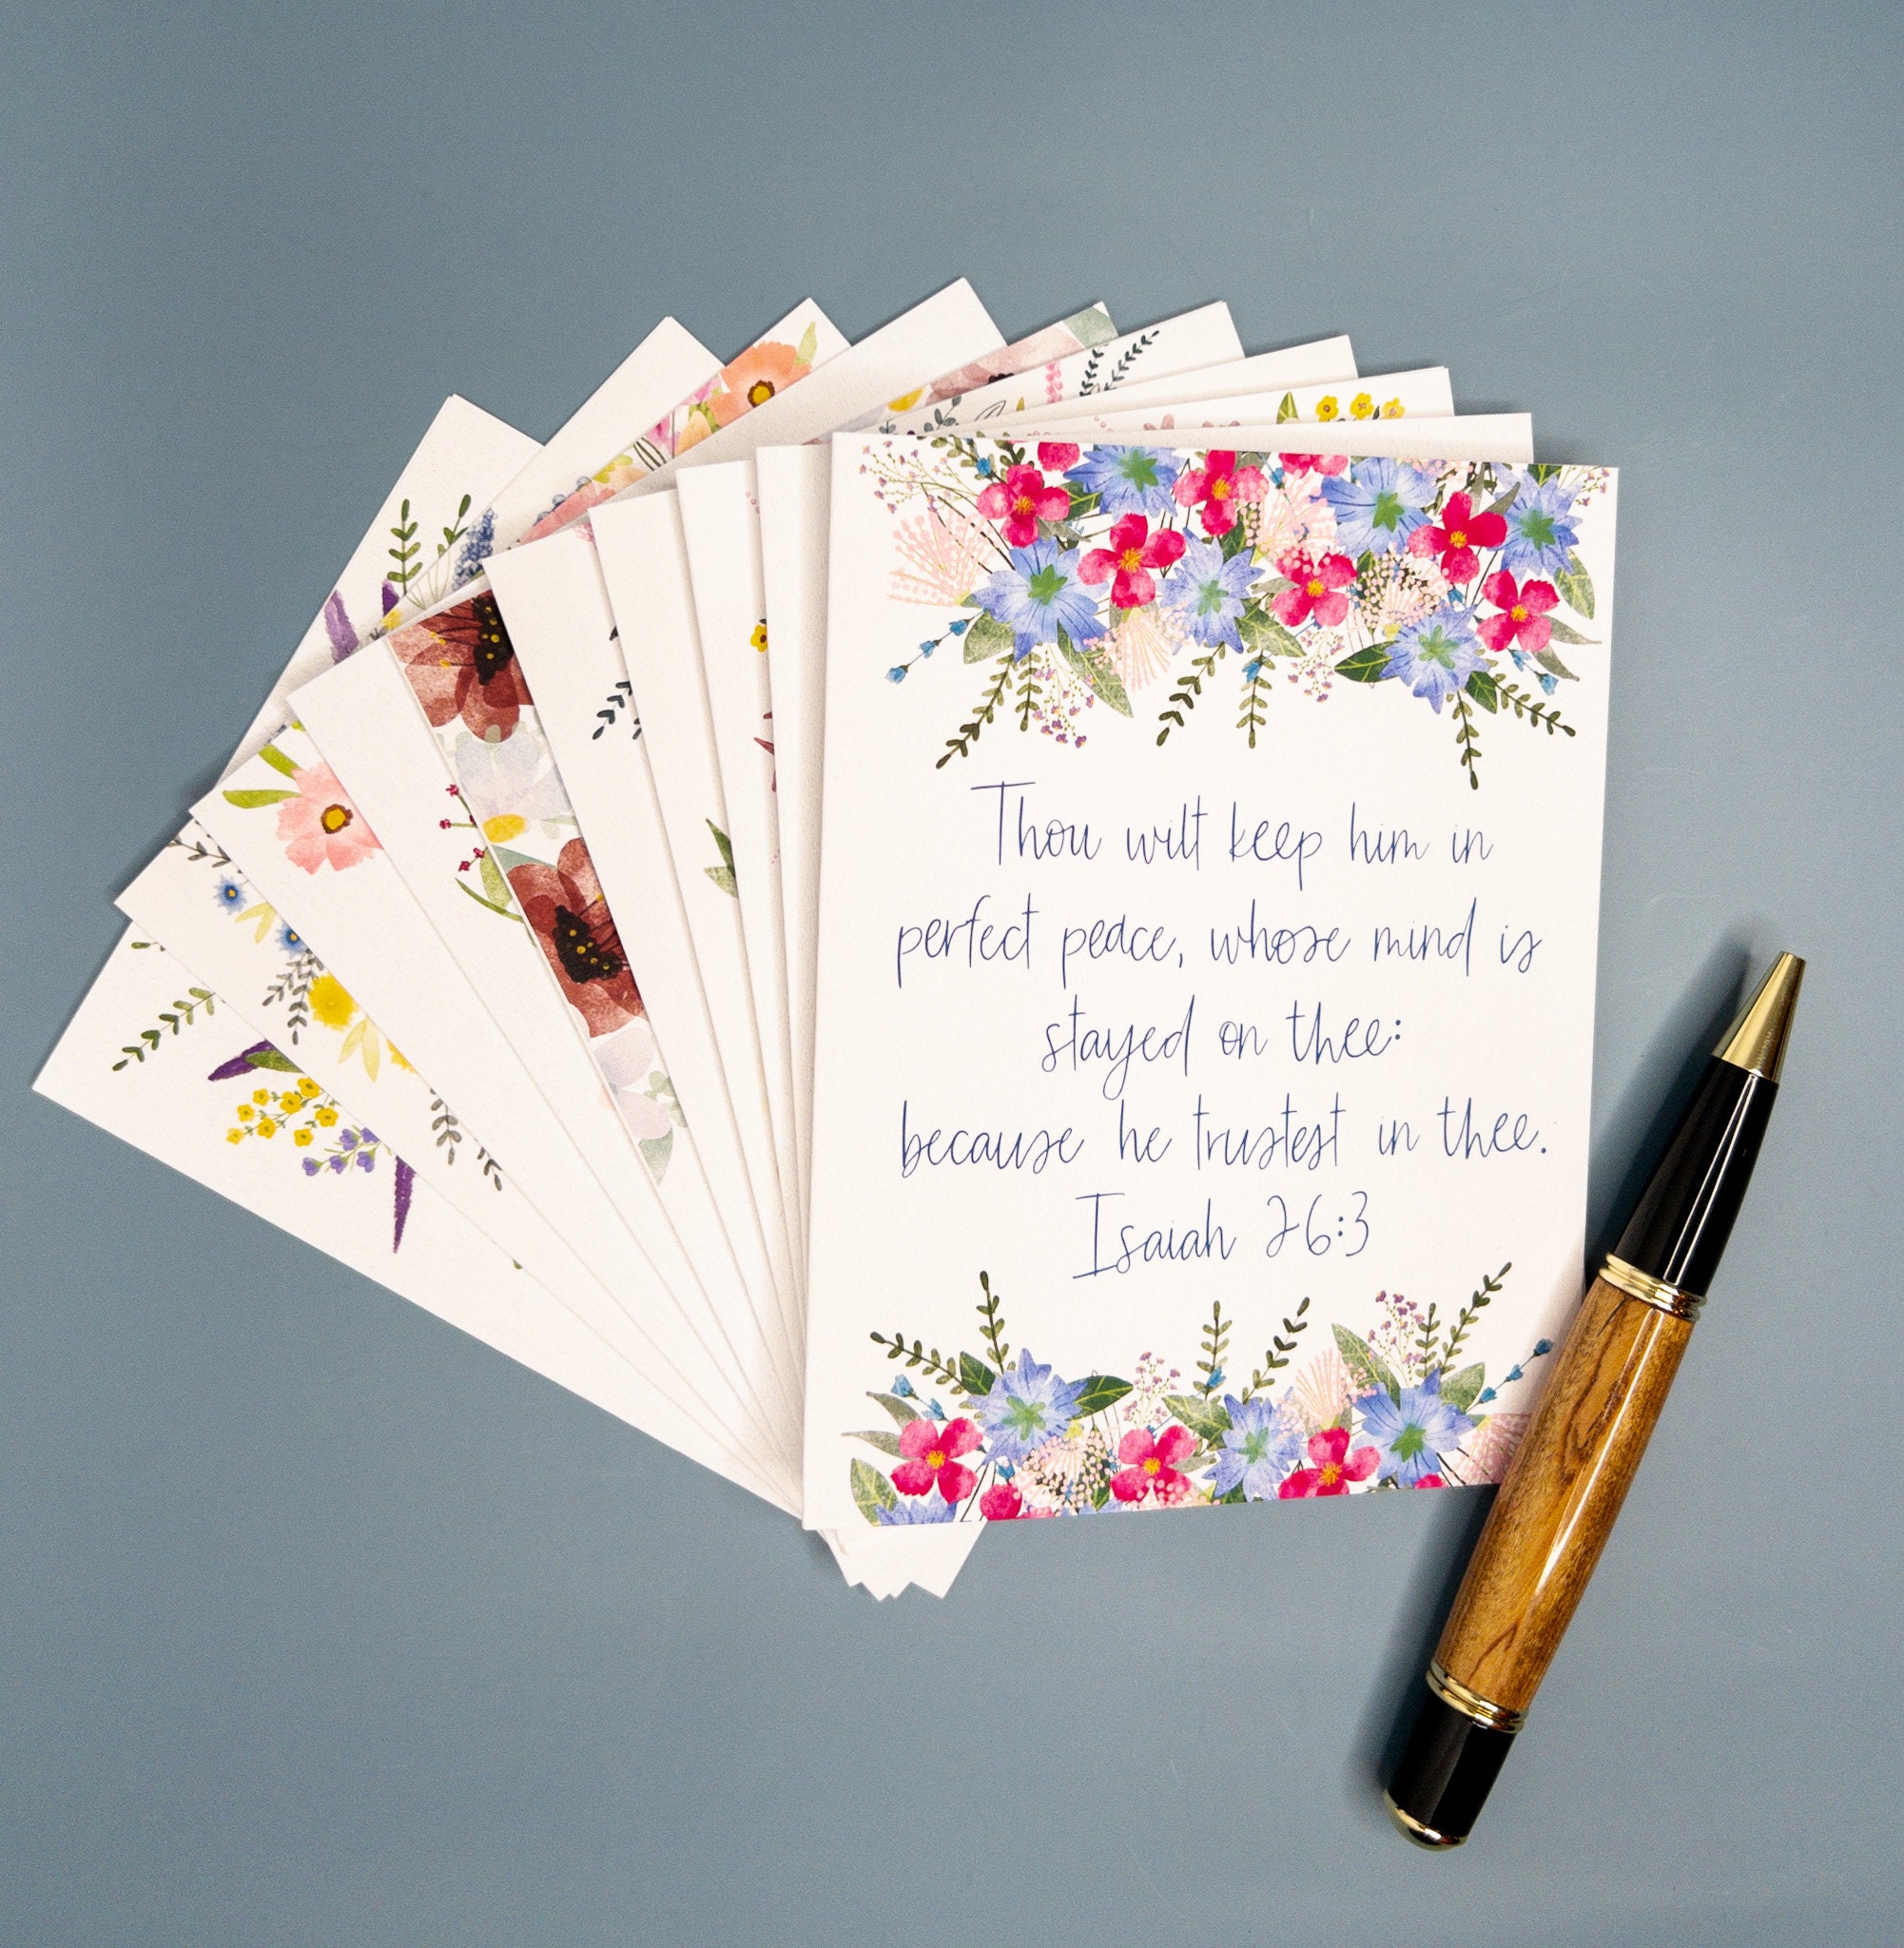 Thou wilt keep him in
perfect peace, whose mind is
stayed on thee:
because he trustest in thee.
Isaiah 26:3